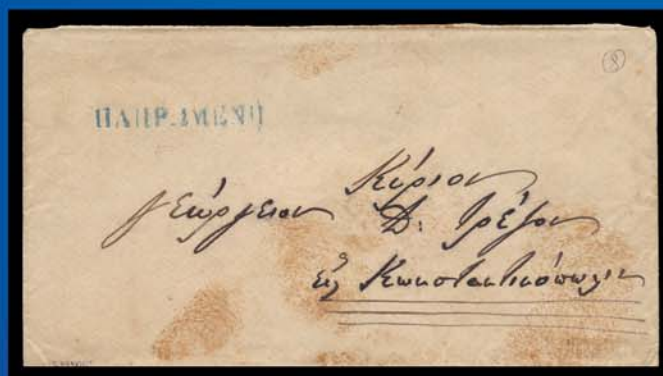 8
ΠΛΗΡΩΜΕΝΗ
Κύριον
Γεώργειον Δ.
εἰς Κωνσταντινόπωλιν